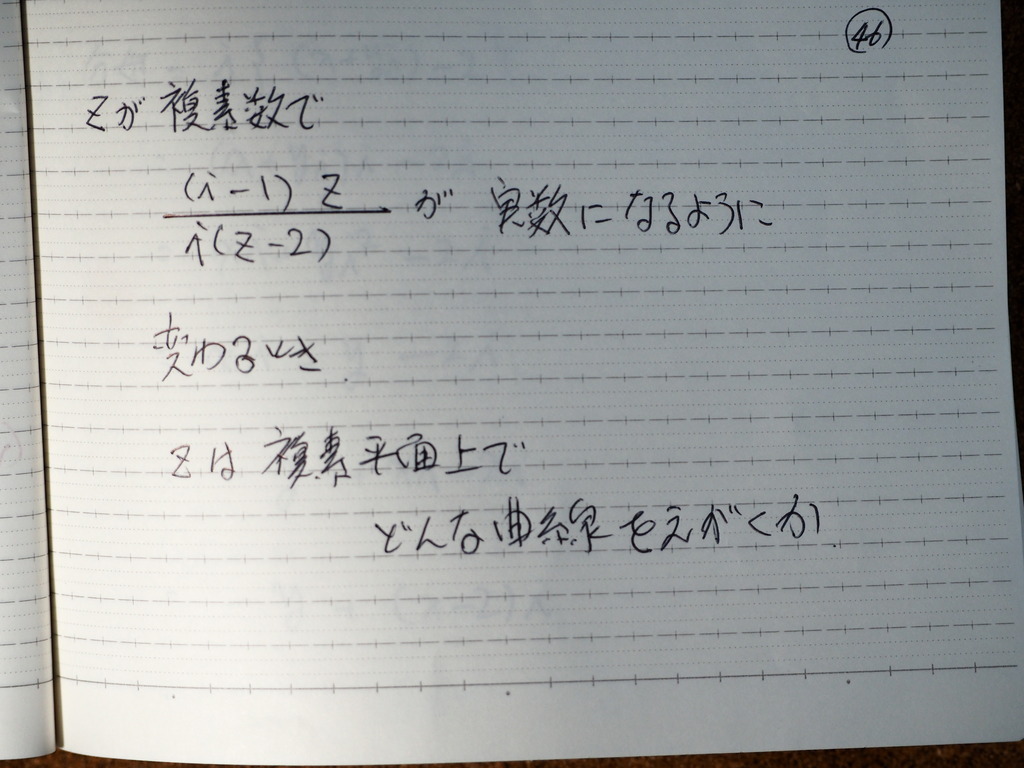 46
zが複素数で
(i-1) z
i(z-2)
が 実数になるように
変わるとき
zは複素平面上で
どんな曲線をえがくか